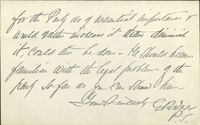 for the Party as of essential importance &
would rather increase it than diminish
it could this be done – He should become
familiar with the legal problems of the
party so far as you can show him –
Yours Sincerely